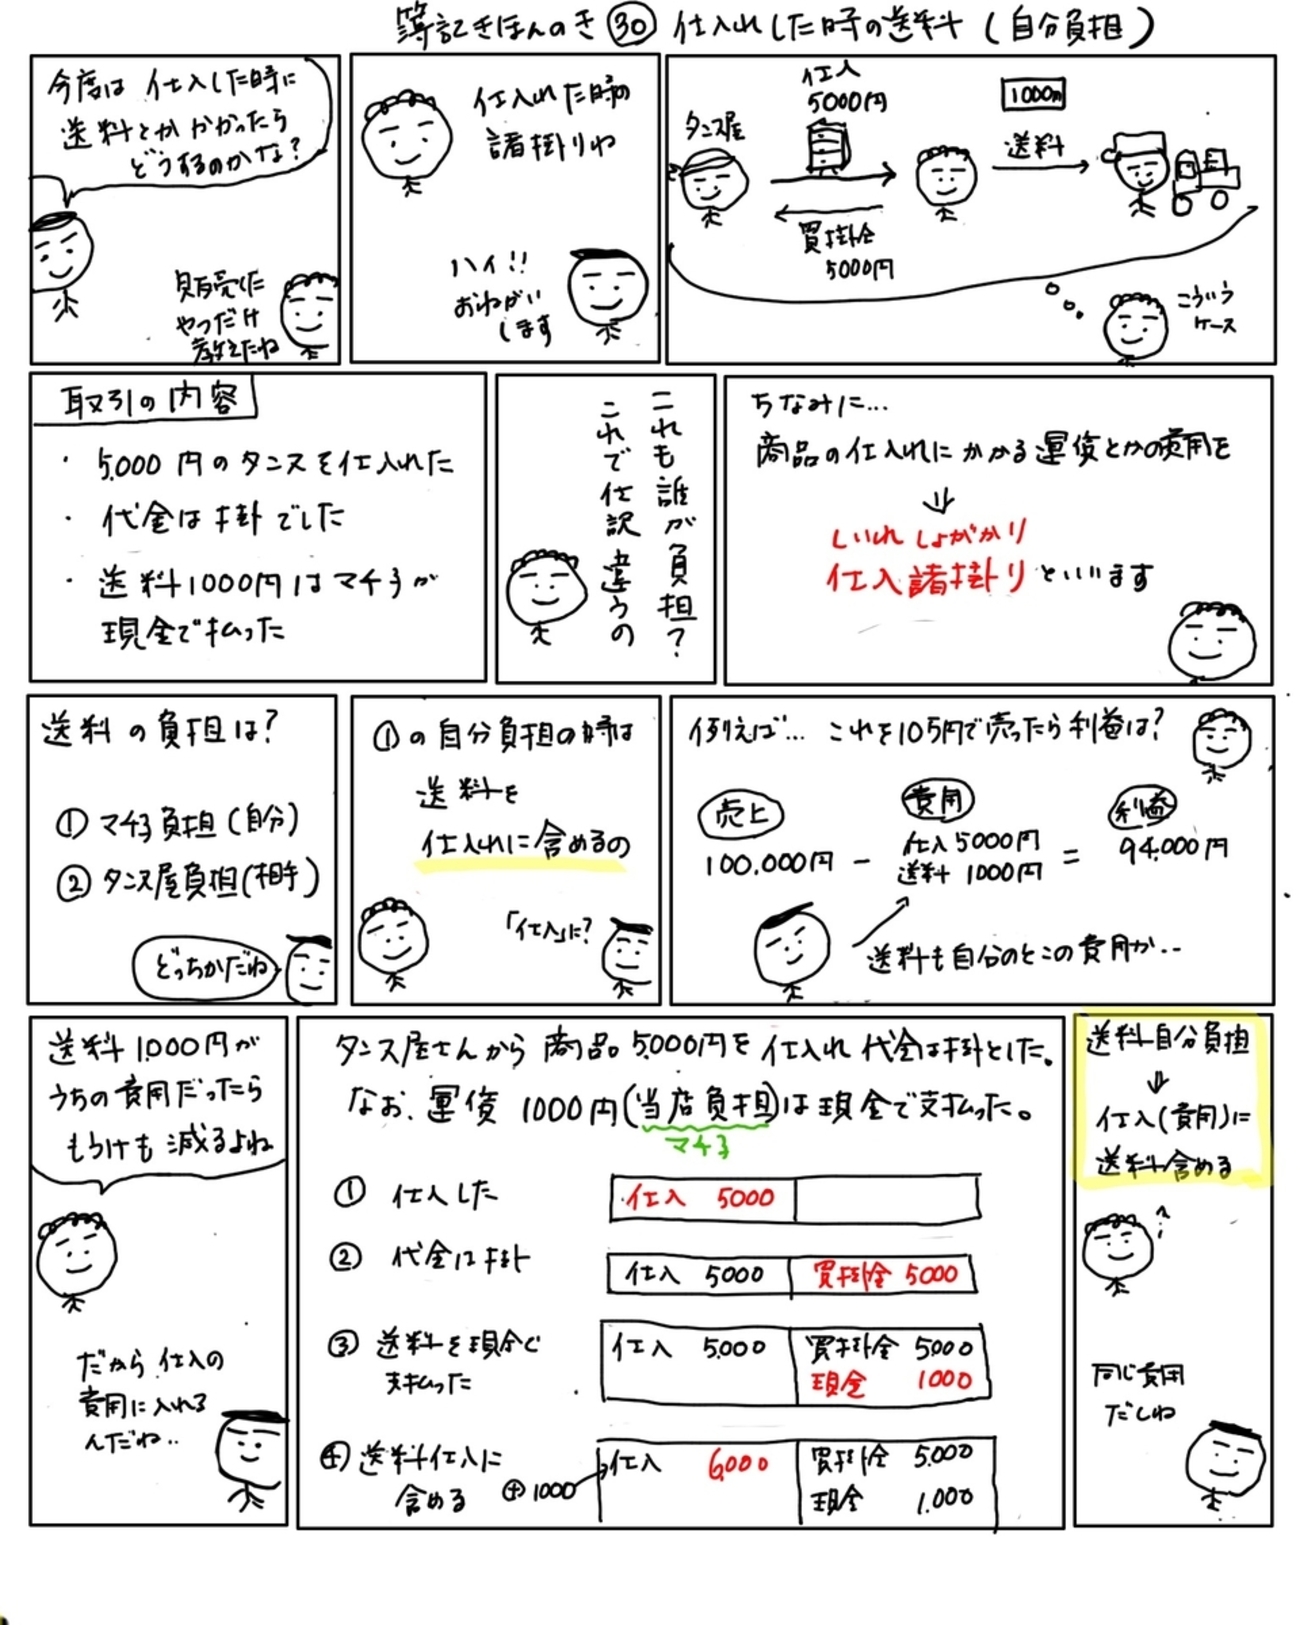 簿記きほんのき㉚ 仕入れした時の送料（自分負担）
今度は仕入した時に
送料とかかかったら
どうするのかな？
販売した
やつだけ
教えたね
仕入れた時の
諸掛りね
ハイ!!
おねがい
します
仕入
5000円
1000円
タンス屋
送料
買掛金
5000円
こういう
ケース
取引の内容
・5,000円のタンスを仕入れた
・代金は掛でした
・送料1000円はマチ子が
現金で払った
これも誰が負担？
これで仕訳違うの
ちなみに…
商品の仕入れにかかる運賃とかの費用を
⇓
しいれしょがかり
仕入諸掛りといいます
送料の負担は？
①マチ子負担（自分）
②タンス屋負担（相手）
どっちかだね
①の自分負担の時は
送料を
仕入れに含めるの
「仕入」に？
例えば… これを10万円で売ったら利益は？
売上 費用 利益
100,000円 － 仕入5000円 ＝ 94,000円
送料1000円
送料も自分のとこの費用か..
送料1,000円が
うちの費用だったら
もうけも減るよね
だから仕入の
費用に入れる
んだね..
タンス屋さんから商品5,000円を仕入れ代金は掛とした。
なお、運賃1000円（当店負担）は現金で支払った。
マチ子
①仕入した
仕入 5000
②代金は掛
仕入 5000 買掛金 5000
③送料を現金で
支払った
仕入 5,000 買掛金 5,000
現金 1000
④送料仕入に
含める
⊕1000
仕入 6,000 買掛金 5,000
現金 1,000
送料自分負担
⇓
仕入（費用）に
送料含める
同じ費用
だしね